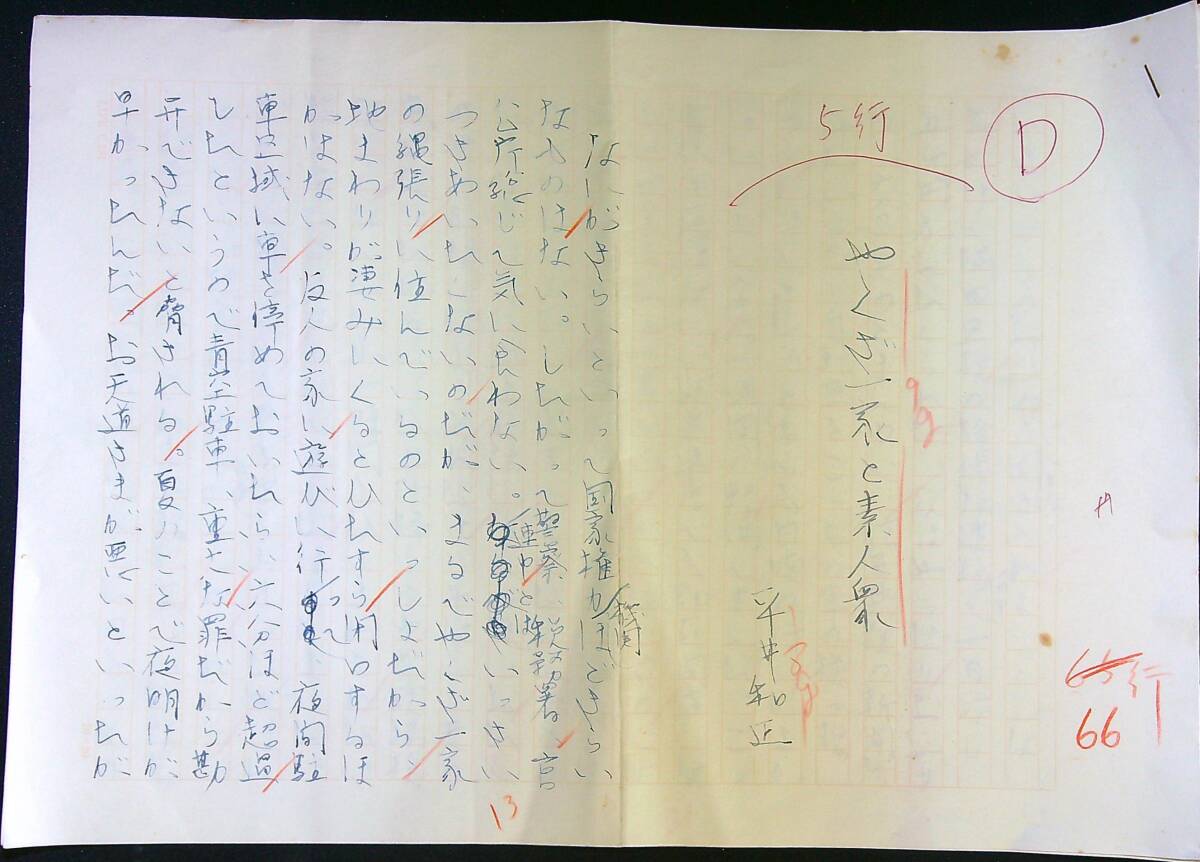 D
5行
やくざ一家と素人衆
平井和正
66
行
なにがきらいといって国家権力機関ほどきらい
なものはない。したがって警察、税務署、官
公庁総じて気に食わない。連中とはいっさい
つきあいたくないのだが、まるでやくざ一家
の縄張りに住んでいるのといっしょだから、
地まわりが凄みにくるとひたすら閉口するほ
かはない。友人の家に遊びに行って、夜間駐
車区域に車を停めておいたら、六分ほど超過
したというので青空駐車、重大な罪だから勘
弁できないと脅される。夏のことで夜明けが
早かったんだ。お天道さまが悪いといったが
13